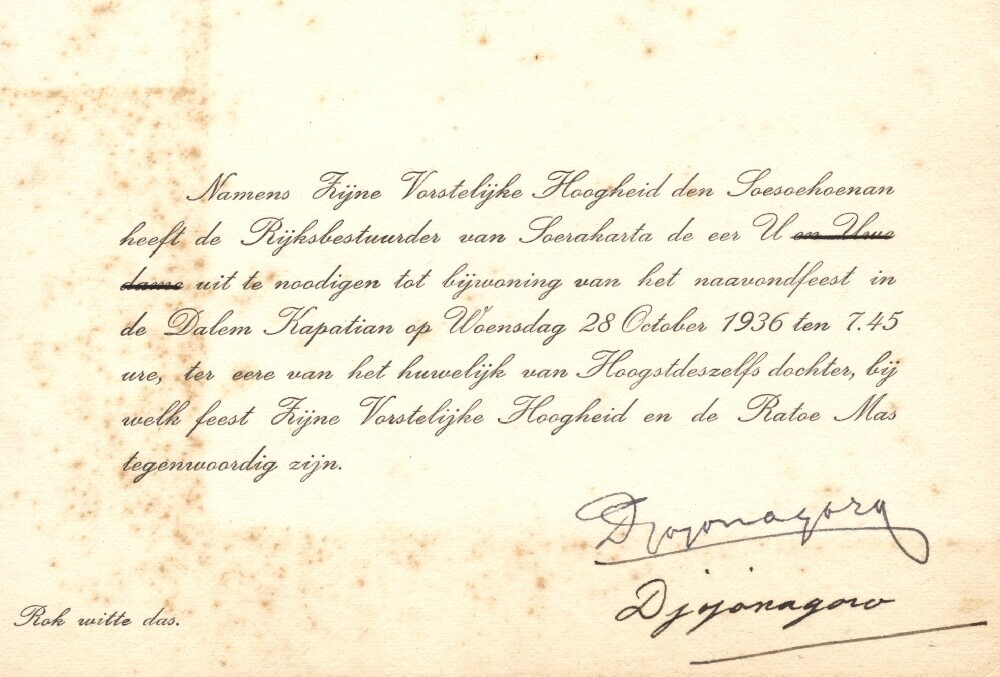 Namens Zijne Vorstelijke Hoogheid den Soesoehoenan
heeft de Rijksbestuurder van Soerakarta de eer U en Uwe
dame uit te noodigen tot bijwoning van het naavondfeest in
de Dalem Kapatian op Woensdag 28 October 1936 ten 7.45
ure, ter eere van het huwelijk van Hoogstdeszelfs dochter, bij
welk feest Zijne Vorstelijke Hoogheid en de Ratoe Mas
tegenwoordig zijn.
Djojonagoro
Djojonagoro
Rok witte das.